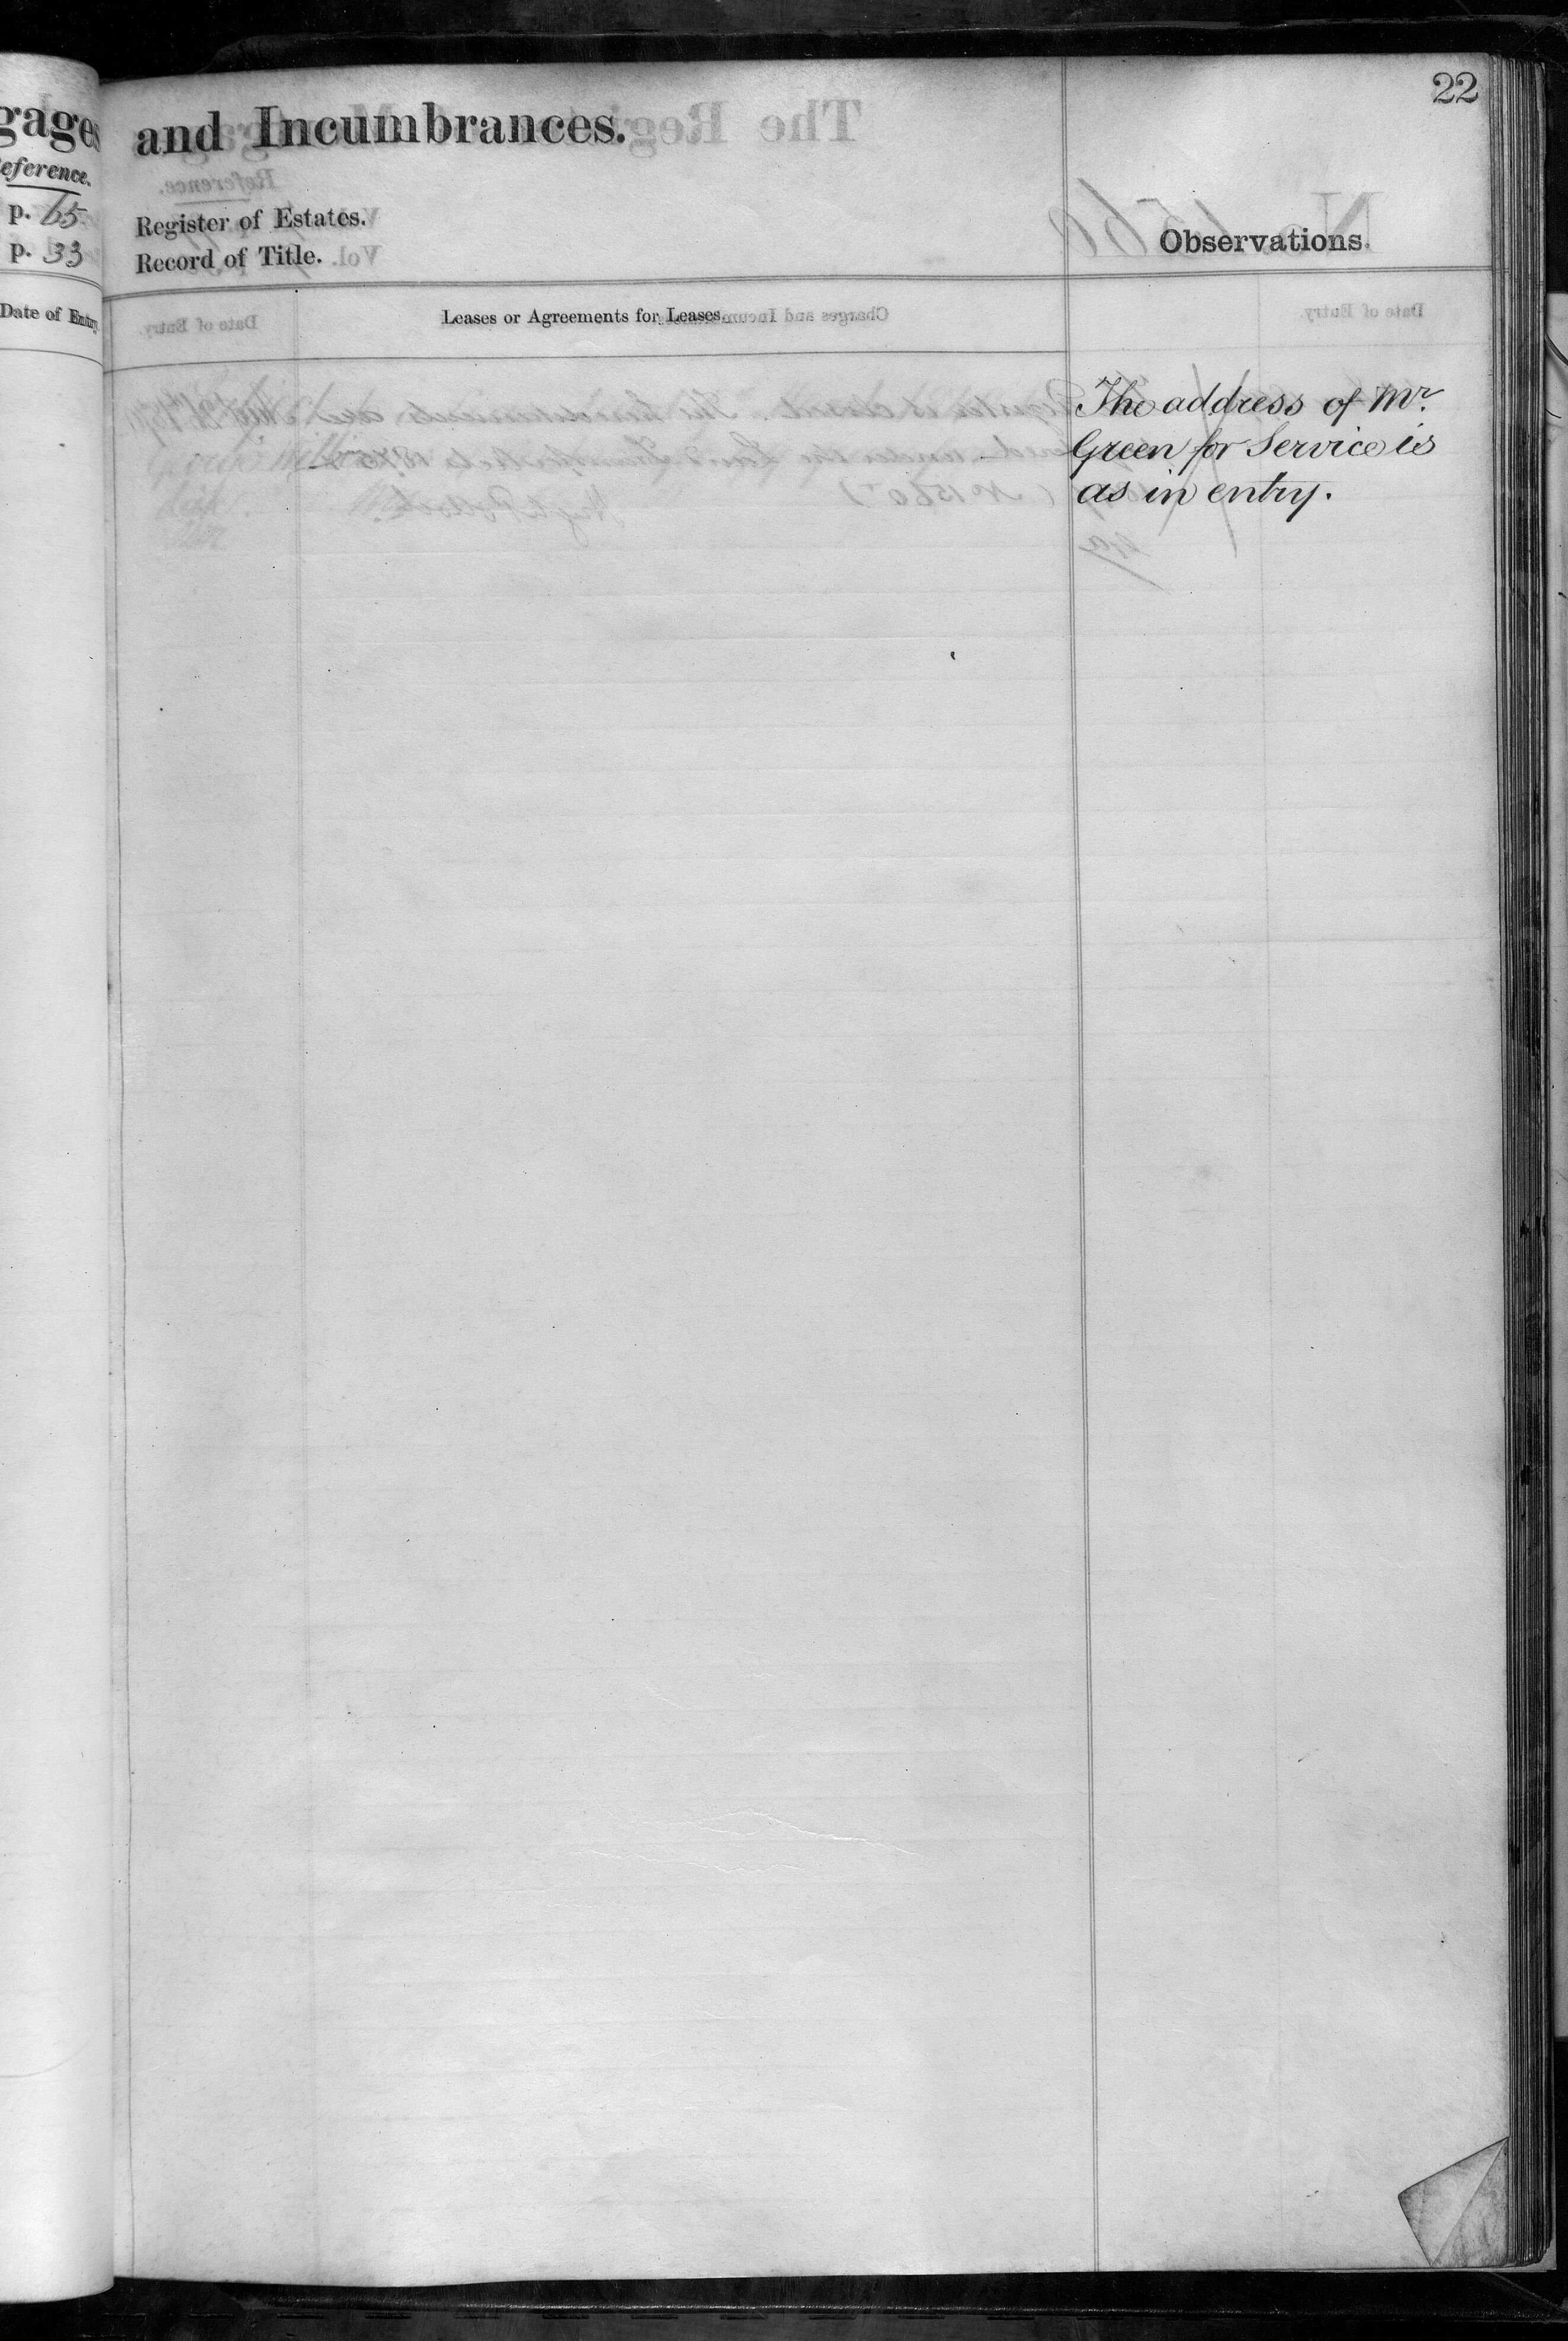 gages
eference.
p. 65
p. 33
Date of Entry
22
and Incumbrances.
Register of Estates.
Record of Title.
Observations.
Leases or Agreements for Leases.
The address of Mr.
Green for Service is
as in entry.